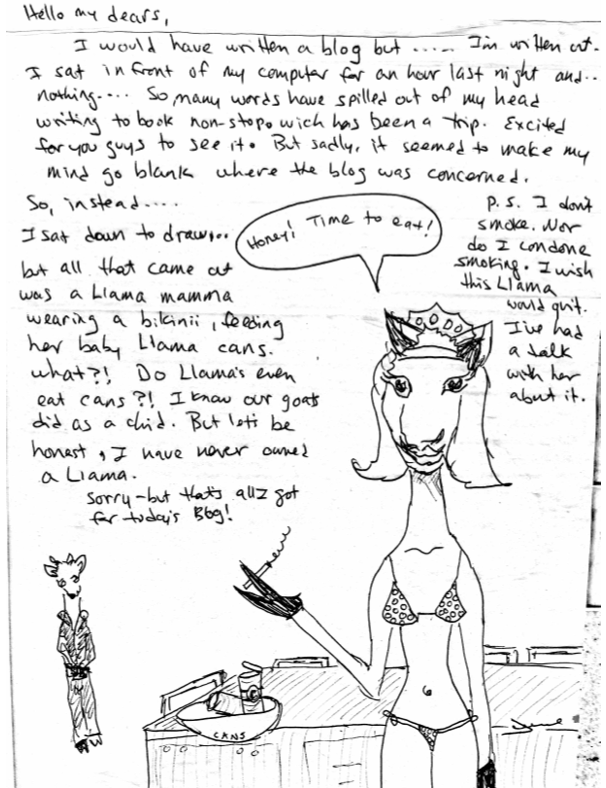 Hello my dears,
I would have written a blog but ..... I'm written out.
I sat in front of my computer for an hour last night and..
nothing.... So many words have spilled out of my head
writing to book non-stop. wich has been a trip. Excited
for you guys to see it. But sadly, it seemed to make my
mind go blank where the blog was concerned.
So, instead....
I sat down to draw....
but all that came out
was a Llama mamma
wearing a bikinii, feeding
her baby Llama cans.
what?! Do Llama's even
eat cans?! I know our goats
did as a chid. But let's be
honest, I have never owned
a Llama.
Sorry-but that's all I got
for today's Blog!
Honey! Time to eat!
P.S. I don't
smoke. Nor
do I condone
smoking. I wish
this Llama
would quit.
I've had
a talk
with her
about it.
CANS